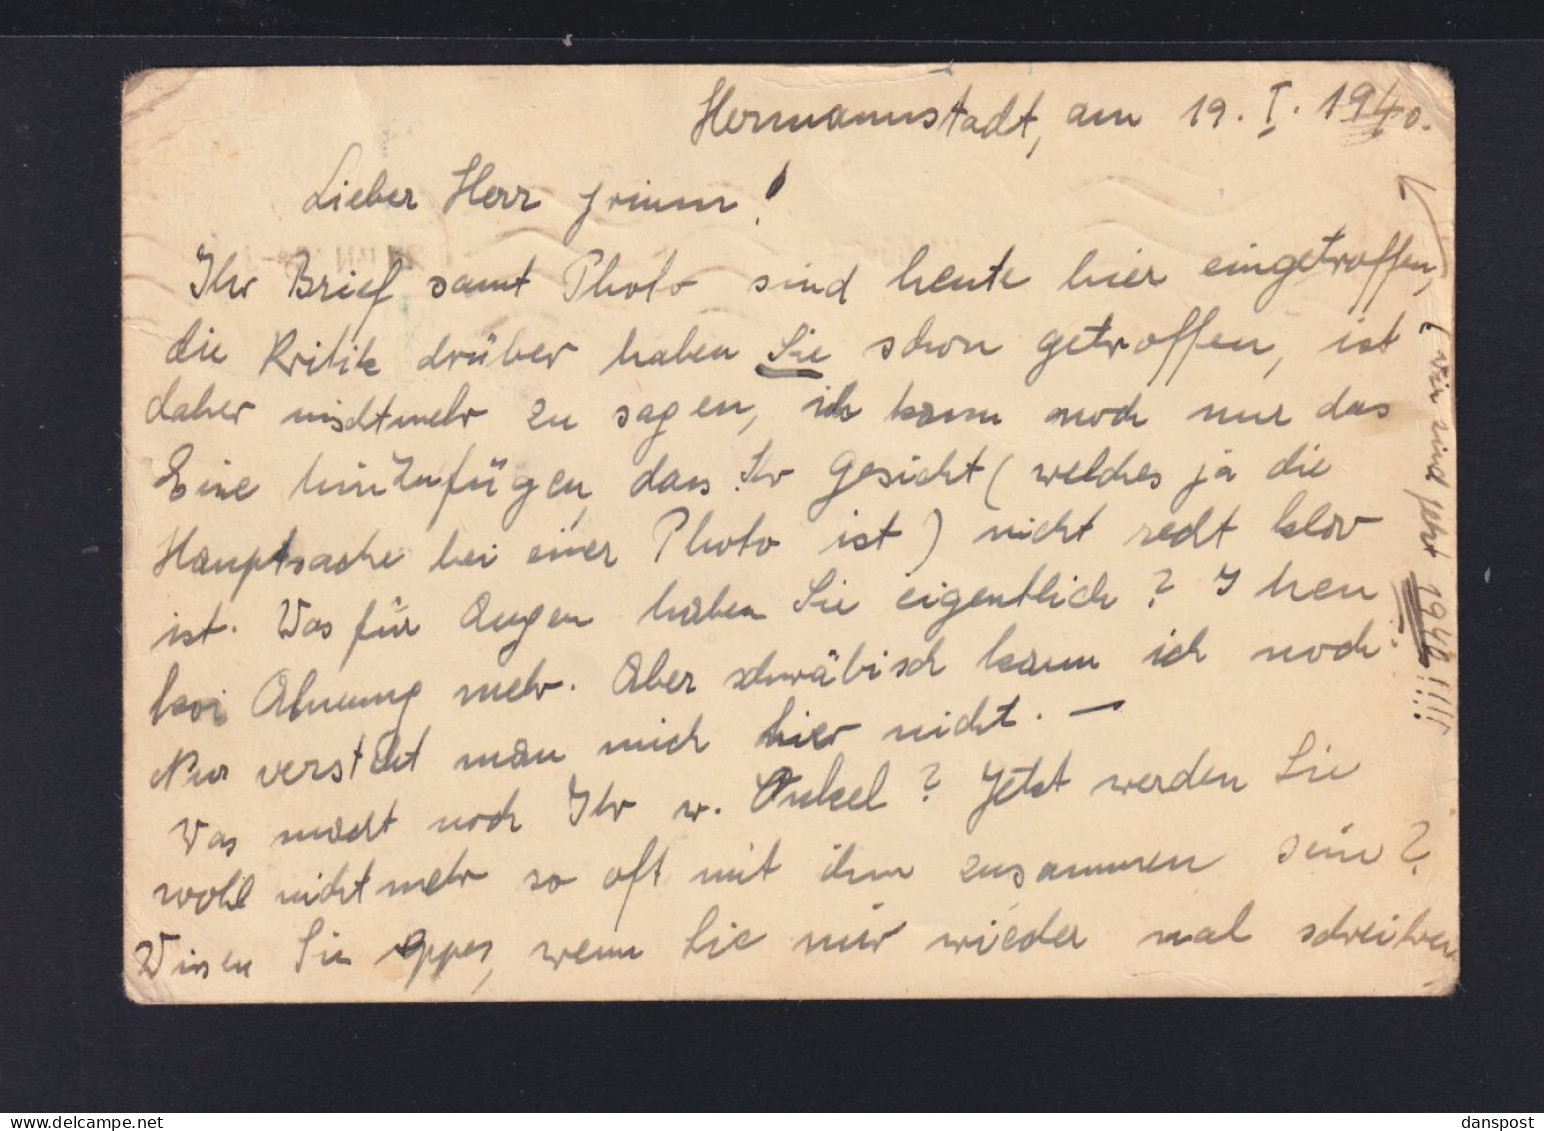 Hermannstadt, am 19. I. 1940.
Lieber Herr Grimm!
Ihr Brief samt Photo sind heute hier eingetroffen,
die Kritik drüber haben Sie schon getroffen, ist
daher nichtmehr zu sagen, ich kann noch nur das
Eine hinzufügen, dass Ihr Gesicht (welches ja die
Hauptsache bei einer Photo ist) nicht recht klar
ist. Was für Augen haben Sie eigentlich? Ihen
kei Ahnung mehr. Aber schwäbisch kann ich noch.
Nur versteht man mich hier nicht. —
Was macht noch Ihr w. Onkel? Jetzt werden Sie
wohl nichtmehr so oft mit ihm zusammen sein?
Wissen Sie eppes, wenn Sie mir wieder mal schreiben
(wir sind jetzt 1940!!!!
www.delcampe.net
danspost